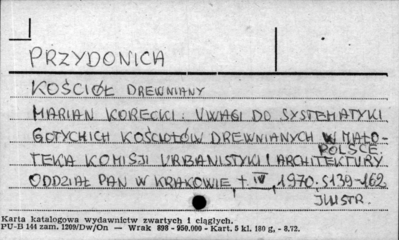 PRZYDONICA
KOŚCIÓŁ DREWNIANY
MARIAN KORECKI: UWAGI DO SYSTEMATYKI
GOTYCHICH KOŚCIOŁÓW DREWNIANYCH W MAŁO-
POLSCE
TEKA KOMISJI URBANISTYKI I ARCHITEKTURY
ODDZIAŁ PAN W KRAKOWIE, t IV, 1970, S139-162
ILUSTR.
Karta katalogowa wydawnictw zwartych i ciągłych.
PU-B 144 zam. 1209/Dw/On — Wrak 898 - 950.000 - Kart. 5 kl. 180 g. - 8.72.